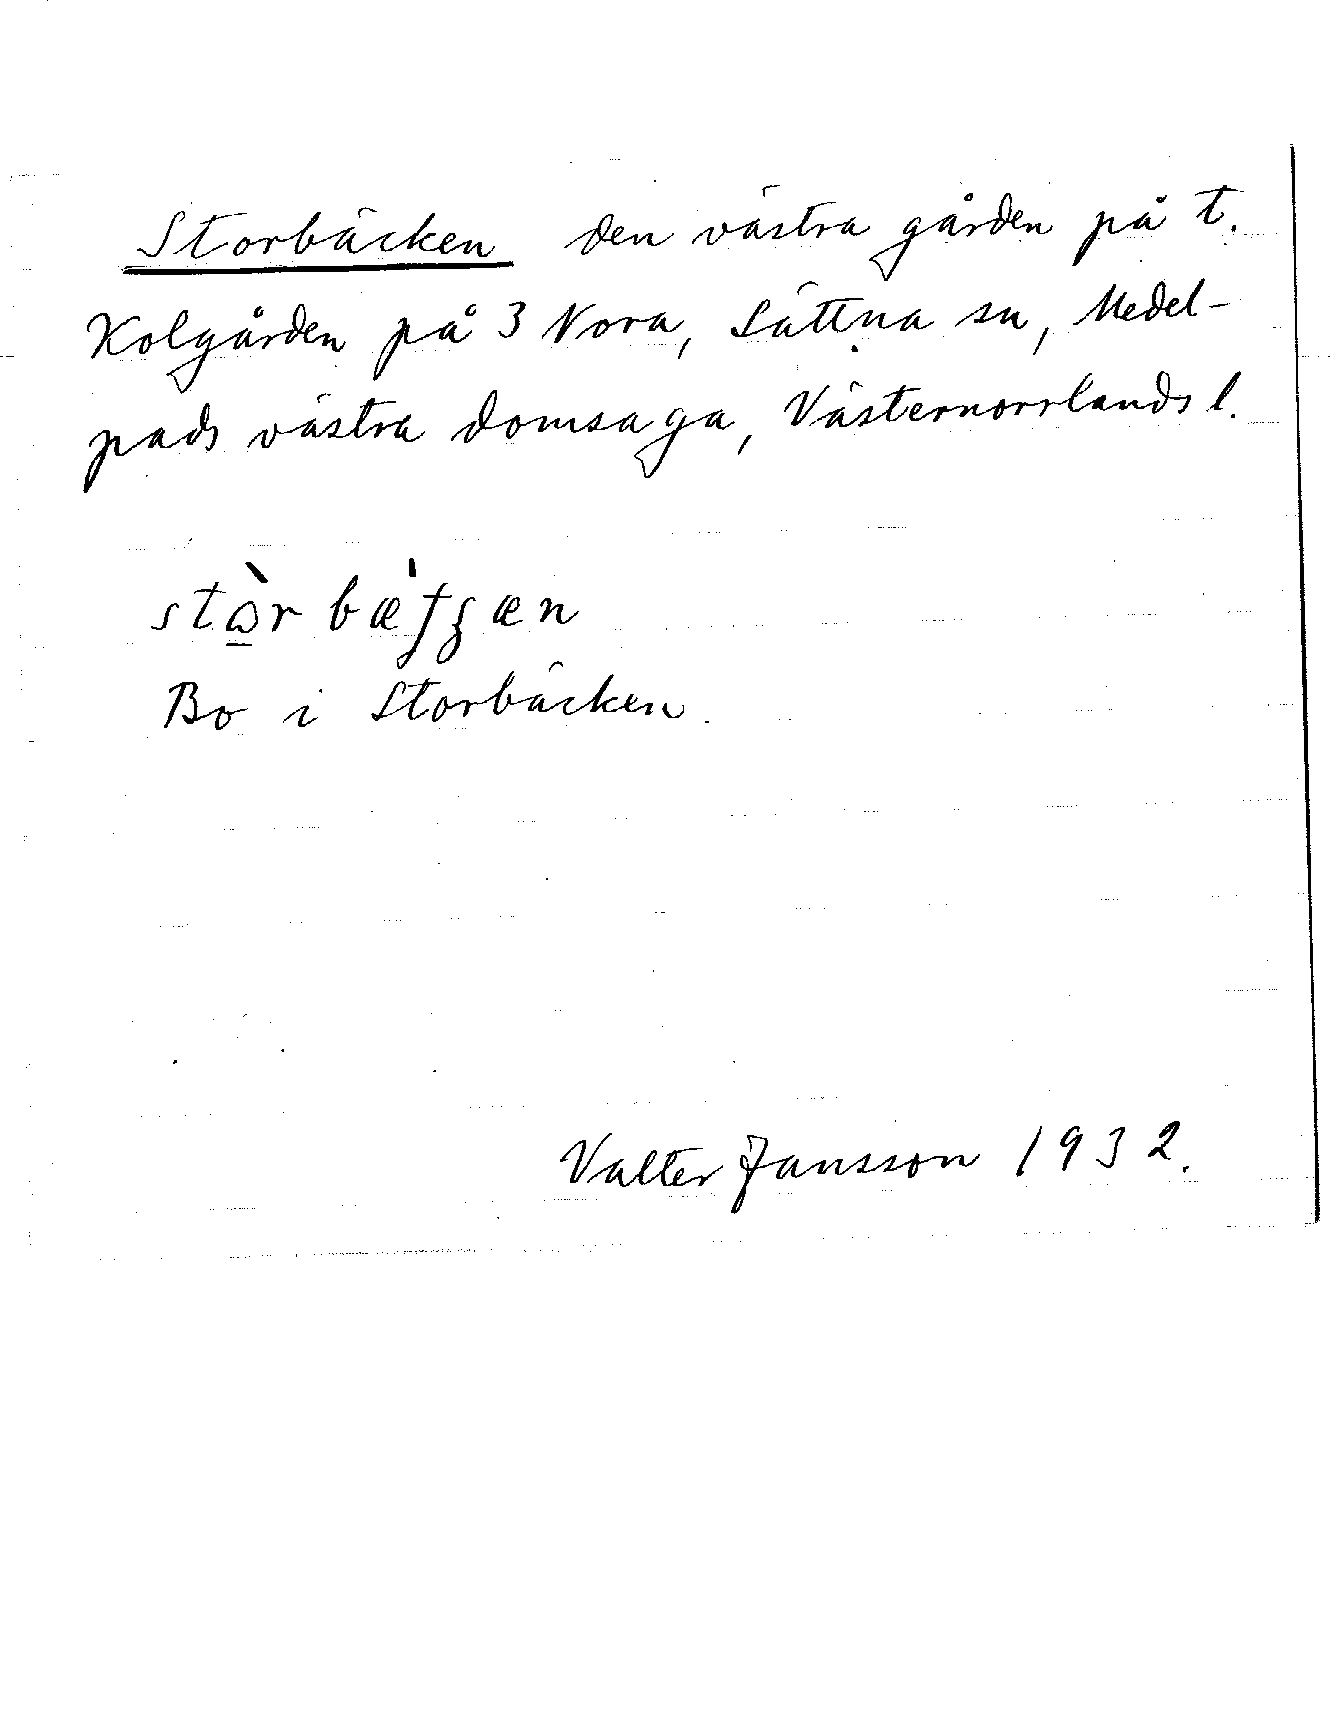 Storbäcken den västra gården på t.
Kolgården på 3 Nora, Sättna sn, Medel-
pads västra domsaga, Västernorrlands l.
Bo i Storbäcken.
Valter Jansson 1932.